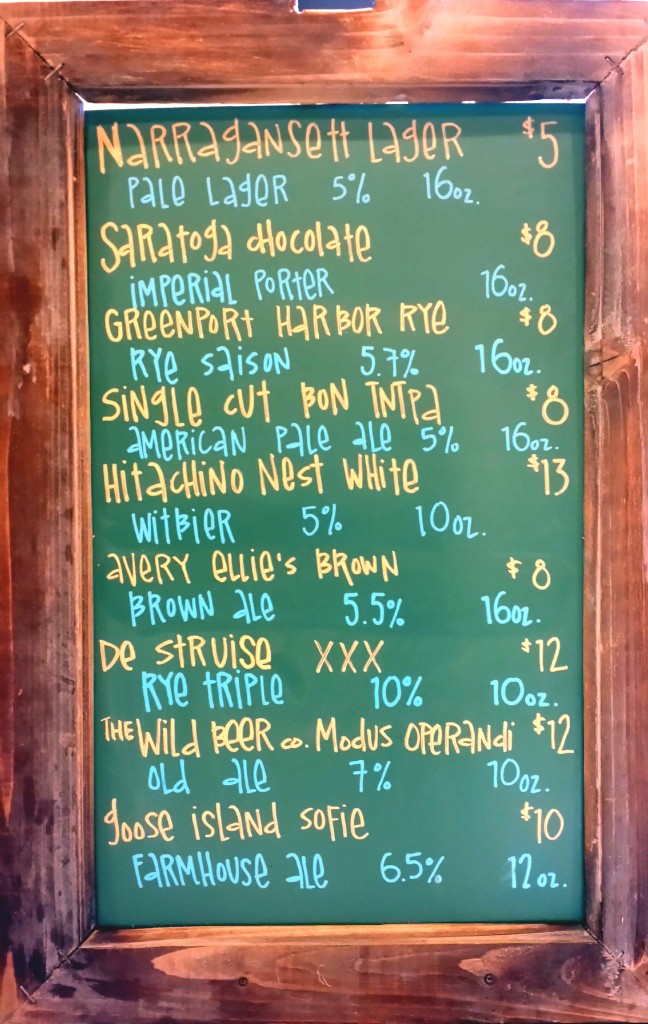 Narragansett Lager $5
Pale Lager 5% 16oz.
Saratoga Chocolate $8
Imperial Porter 16oz.
Greenport Harbor Rye $8
Rye Saison 5.7% 16oz.
Single Cut Bon TNTPA $8
American Pale Ale 5% 16oz.
Hitachino Nest White $13
Witbier 5% 10oz.
Avery Ellie's Brown $8
Brown Ale 5.5% 16oz.
De Struise XXX $12
Rye Triple 10% 10oz.
The Wild Beer co. Modus Operandi $12
Old Ale 7% 10oz.
Goose Island Sofie $10
Farmhouse Ale 6.5% 12oz.